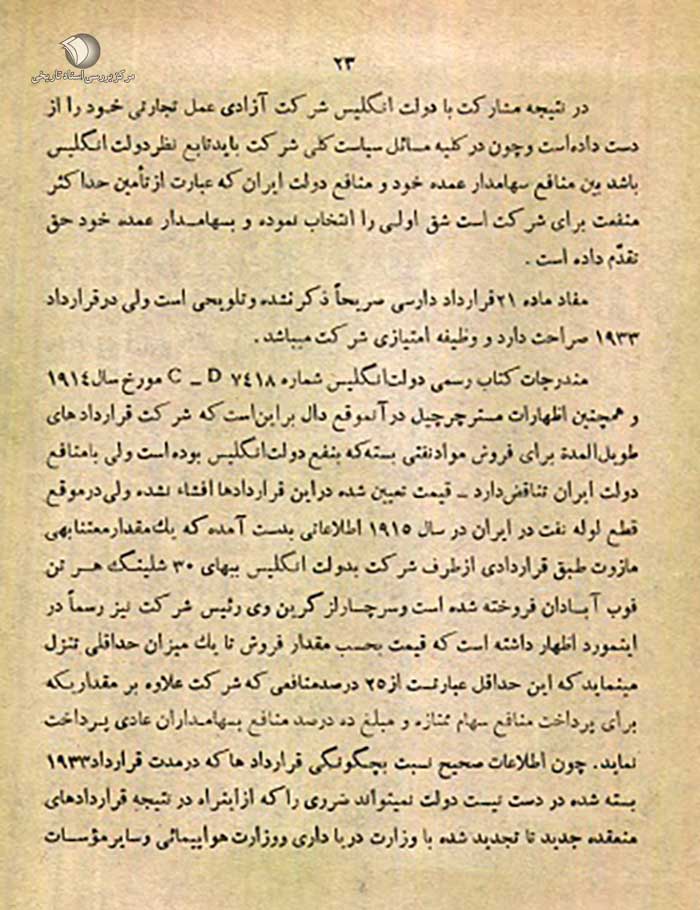 مرکز بررسی اسناد تاریخی
۲۳
در نتیجه مشارکت با دولت انگلیس شرکت آزادی عمل تجارتی خود را از
دست داده‌است وچون در کلیه مسائل سیاست کلی شرکت باید تابع نظر دولت انگلیس
باشد بین منافع سهامدار عمده خود و منافع دولت ایران که عبارت از تأمین حداکثر
منفعت برای شرکت است شق اولی را انتخاب نموده و بسهامدار عمده خود حق
تقدّم داده است .
مفاد ماده ۲۱ قرارداد دارسی صریحاً ذکر نشده و تلویحی است ولی در قرارداد
۱۹۳۳ صراحت دارد و وظیفه امتیازی شرکت میباشد .
مندرجات کتاب رسمی دولت انگلیس شماره ۷۴۱۸ C _ D مورخ سال ۱۹۱۴
و همچنین اظهارات مسترچرچیل در آنموقع دال بر این‌است که شرکت قراردادهای
طویل‌المدة برای فروش مواد نفتی بسته‌که بنفع دولت‌انگلیس بوده است ولی بامنافع
دولت ایران تناقض‌دارد _ قیمت تعیین شده دراین قراردادها افشاء نشده ولی درموقع
قطع لوله نفت در ایران در سال ۱۹۱۵ اطلاعاتی بدست آمده که یك مقدار معتنابهی
مازوت طبق قراردادی ازطرف شرکت بدولت انگلیس ببهای ۳۰ شلینگ هر تن
فوب آبادان فروخته شده است وسرچارلز گرین وی رئیس شرکت نیز رسماً در
اینمورد اظهار داشته است که قیمت بحسب مقدار فروش تا یك میزان حداقلی تنزل
مینماید که این حداقل عبارتست از ۲۵ درصدمنافعی که شرکت علاوه بر مقداریکه
برای پرداخت منافع سهام ممتازه و مبلغ ده درصد منافع بسهامداران عادی پرداخت
نماید. چون اطلاعات صحیح نسبت بچگونگی قرارداد ها که درمدت قرارداد ۱۹۳۳
بسته شده در دست نیست دولت نمیتواند ضرری را که ازاینراه در نتیجه قراردادهای
منعقده جدید تا تجدید شده با وزارت دریا داری ووزارت هواپیمائی وسایر مؤسسات